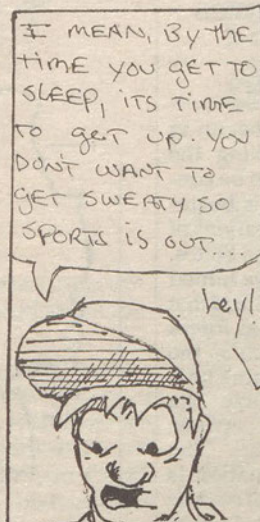 I MEAN, BY THE
TIME YOU GET TO
SLEEP, ITS TIME
TO GET UP. YOU
DON'T WANT TO
GET SWEATY SO
SPORTS IS OUT....
hey!